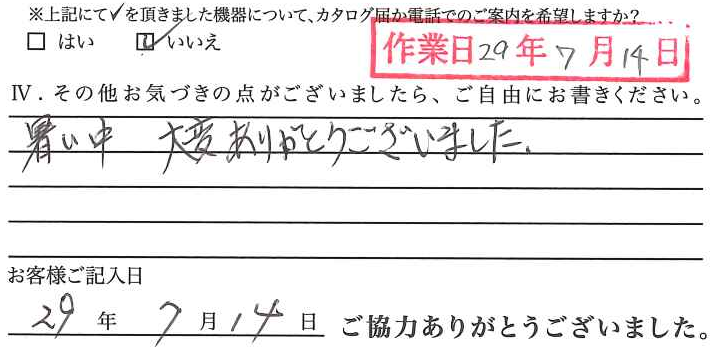 ※上記にて✓を頂きました機器について、カタログ届か電話でのご案内を希望しますか?
□ はい ☑ いいえ
作業日29年7月14日
Ⅳ．その他お気づきの点がございましたら、ご自由にお書きください。
暑い中 大変ありがとうございました。
お客様ご記入日
29年 7月14日 ご協力ありがとうございました。